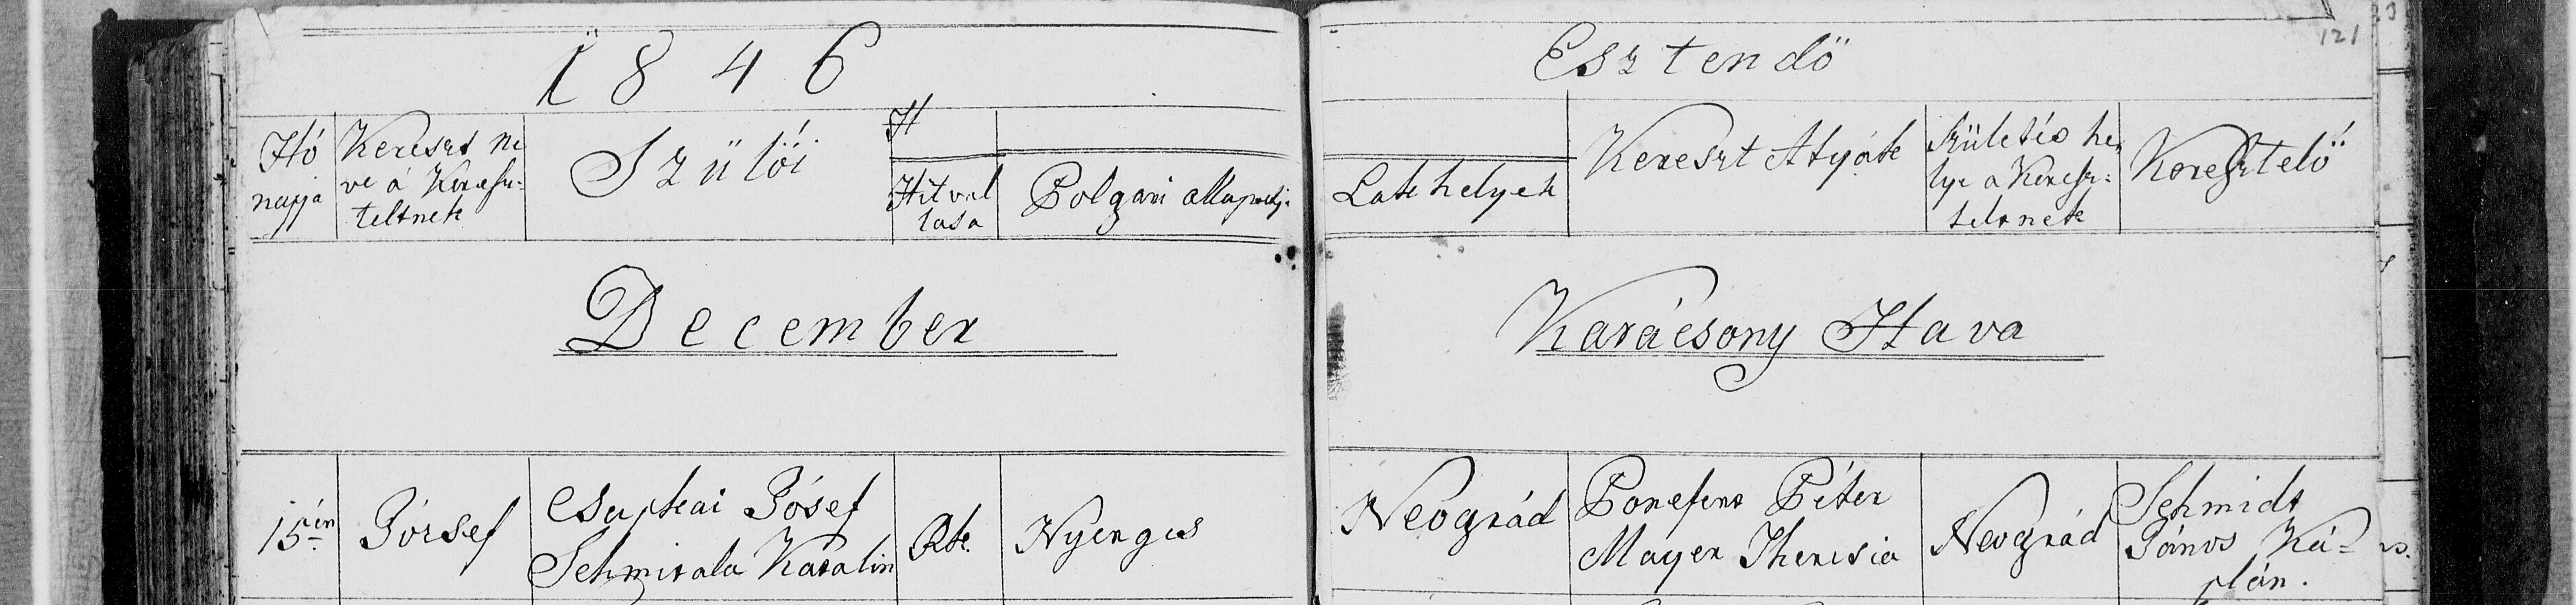 1846
Esztendö
121
Hó
napja
Kereszt ne
ve á Keresz-
teltnek
Szülöi
H
Hitval
lasa
Polgari allapotj.
Lakhelyek
Kereszt Atyák
Születés he,
lye a Keresz:
teltnek
Keresztelö
December
Karácsony Hava
15én
Jósef
Csupkai Jósef
Schmirala Katalin
Rk.
Nyerges
Neográd
Péter
Mayer Theresia
Neográd
Schmidt
János Ká=
plán.